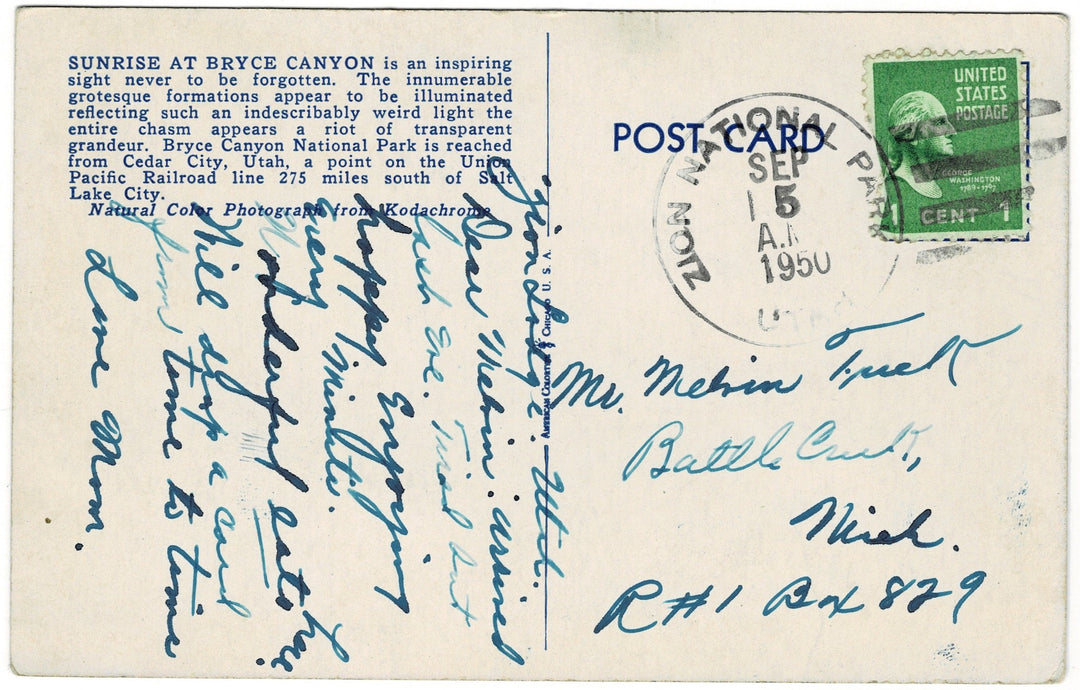 SUNRISE AT BRYCE CANYON is an inspiring
sight never to be forgotten. The innumerable
grotesque formations appear to be illuminated
reflecting such an indescribably weird light the
entire chasm appears a riot of transparent
grandeur. Bryce Canyon National Park is reached
from Cedar City, Utah, a point on the Union
Pacific Railroad line 275 miles south of Salt
Lake City.
Natural Color Photograph from Kodachrome
Zion Lodge. Utah.
Dear Melvin: arrived
last eve. Tired but
happy. Enjoying
every minute.
Wonderful eats here.
Will drop a card
from time to time
Love Mom.
AMERICAN COLORTYPE CHICAGO U. S. A.
POST CARD
ZION NATIONAL PARK
SEP
5
A.M
1950
UTAH
UNITED
STATES
POSTAGE
GEORGE
WASHINGTON
1789-1797
1 CENT 1
Mr. Melvin
Battle Creek,
Mich.
R#1 Box 829